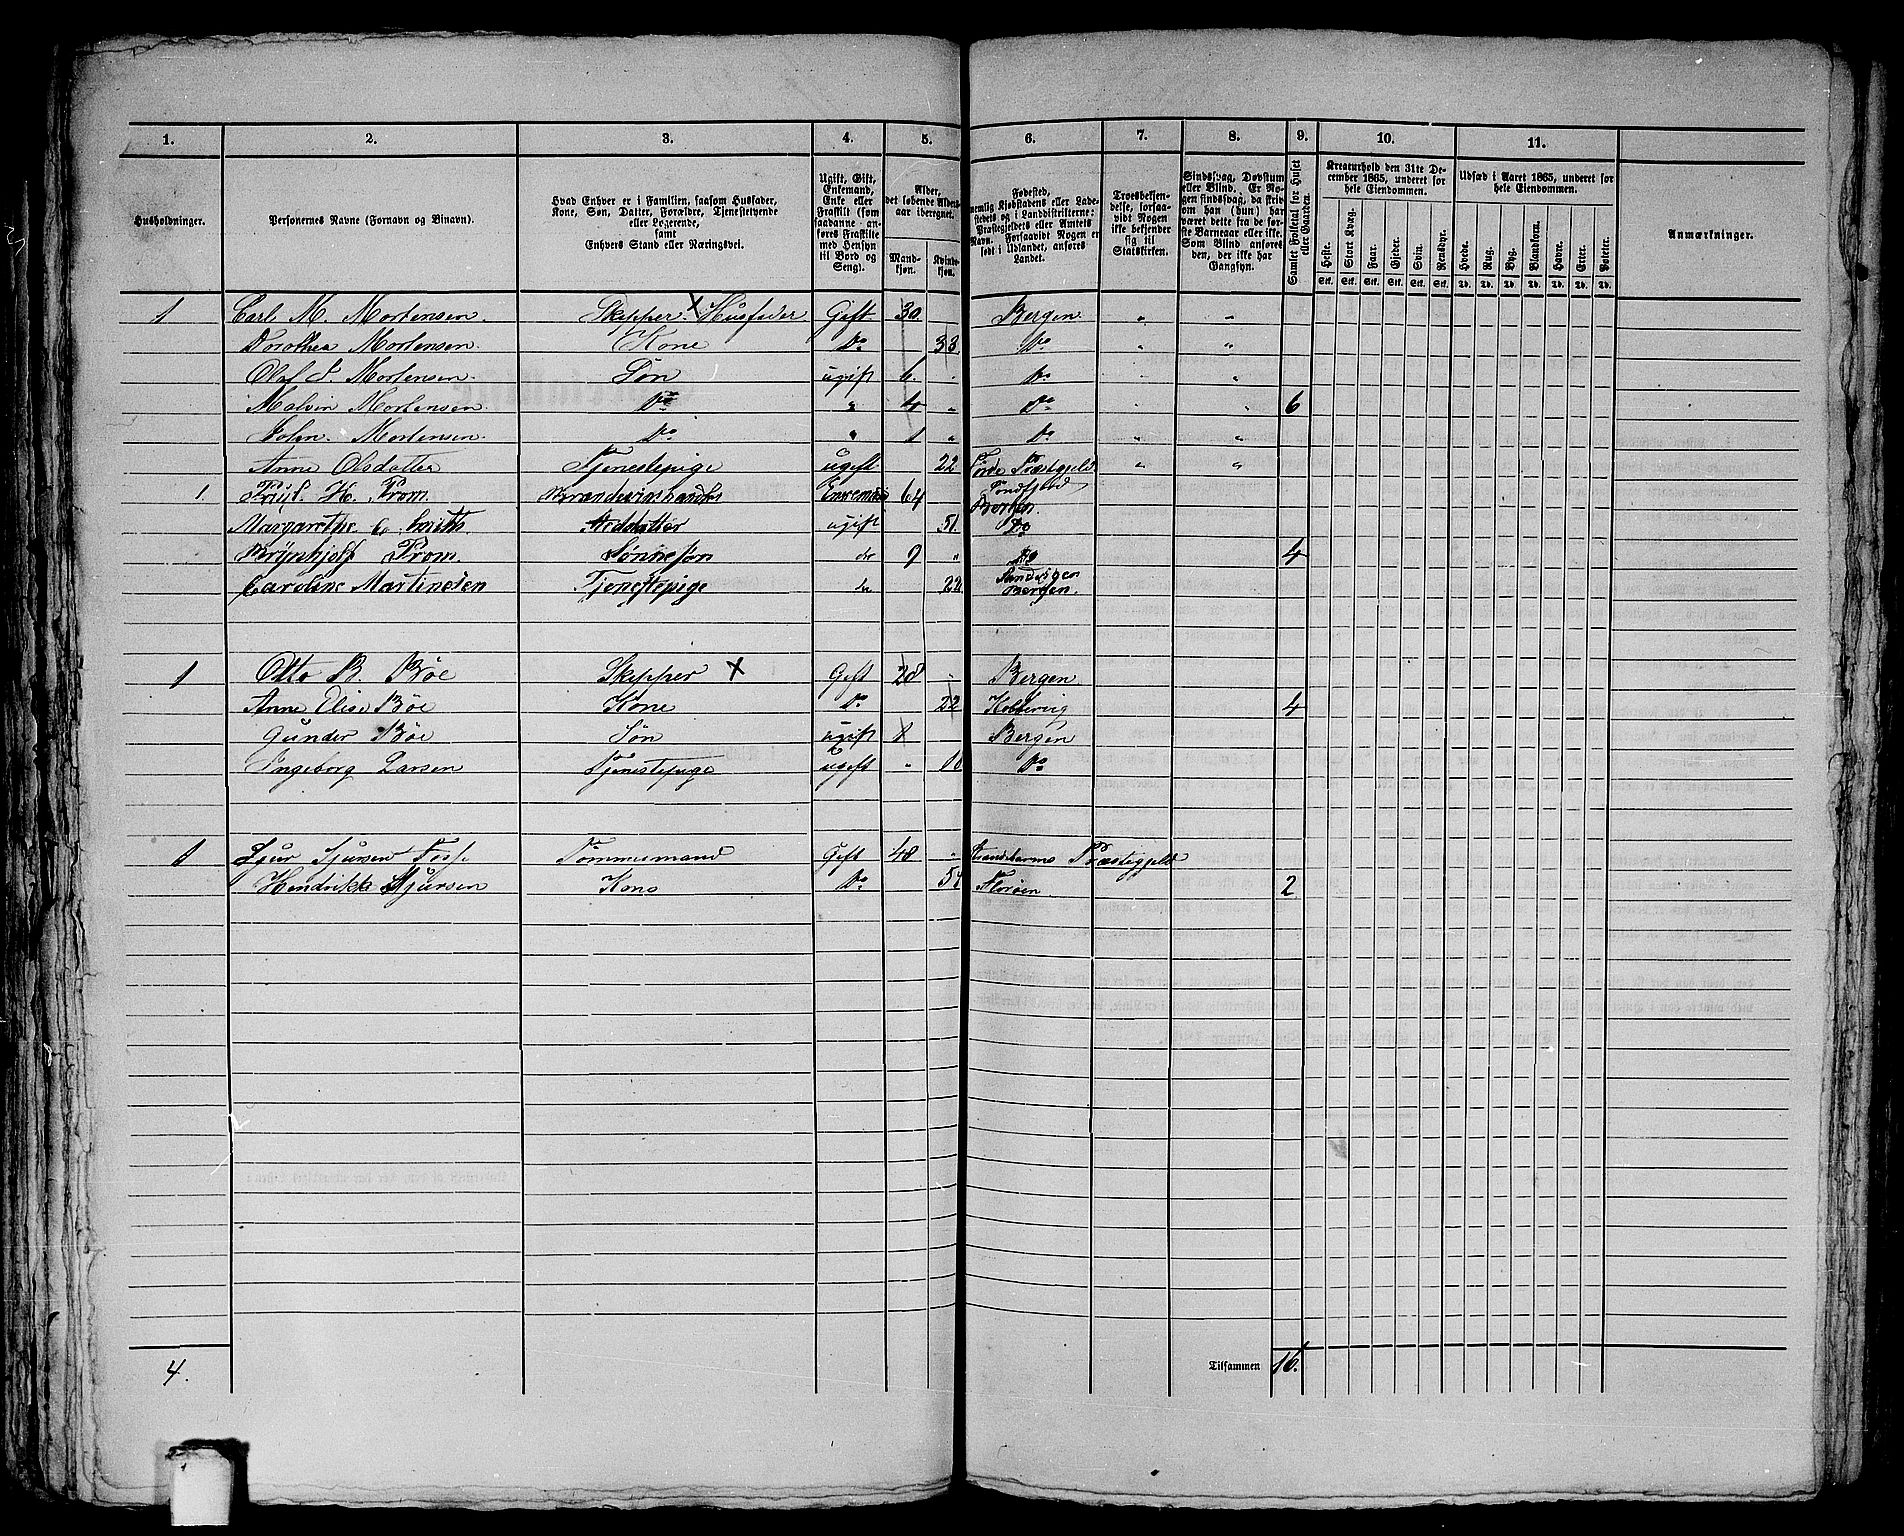 1. 2. 3. 4. 5. 6. 7. 8. 9. 10. 11.
Husholdninger.
Personernes Navne (Fornavn og Binavn).
Hvad Enhver er i Familien, saasom Husfader,
Kone, Søn, Datter, Forældre, Tjenestetyende
eller Logerende,
samt
Enhvers Stand eller Næringsvei.
Ugift, Gift,
Enkemand,
Enke eller
Fraskilt (som
saadanne anføres Fraskilte
med Hensyn
til Bord og
Seng).
Alder,
det løbende Aldersaar iberegnet.
Mandkjøn.
Kvindekjøn.
Fødested,
nemlig Kjøbstadens eller Ladestedets og i Landdistrikterne:
Præstegjeldets eller Amtets
Navn. Forsaavidt Nogen er
født i Udlandet, anføres
Landet.
Troesbekjendelse, forsaavidt Nogen
ikke bekjender
sig til
Statskirken.
Sindssvag, Døvstum
eller Blind. Er Nogen sindssvag, da skrives om
han (hun) har
været dette fra de første Barneaar eller ikke.
Som Blind anføres
den, der ikke har
Gangsyn.
Samlet Folketal for Huset
eller Gaarden.
Kreaturhold den 31te December 1865, underet for
hele Eiendommen.
Heste. Stort Kvæg. Faar. Gjeder. Svin. Rensdyr.
Udsæd i Aaret 1865, underet for
hele Eiendommen.
Hvede. Rug. Byg. Blandkorn. Havre. Erter. Poteter.
Anmærkninger.
1 Carl M. Mortensen. Skipper. x Husfader Gift 30. Bergen „ „
Dorothea Mortensen. Kone Do 33. Do „ „
Olaf S. Mortensen. Søn ugift 6. „ Do „ „
Malvin Mortensen Do „ 4 „ Do „ „ 6
John. Mortensen. Do „ 1 „ Do „ „
Anne Olsdatter Tjenestepige ugift 22 Førde Præstegjeld „ „
Søndfjord
1. H. Prom. Brændevinshandler Enkemand 64 Bergen.
Margarethe ugift 51. Do
Brynhjolf Prom. Sønnesøn do 9 „ Do 4
Caroline Martinesen Tjenestepige do 22 Sandvigen
Bergen.
1 Otto B. Bøe Skipper x Gift 28 „ Bergen
Anne Elise Bøe Kone Do 22 4
Gunder Bøe Søn ugift 1 Bergen
Ingeborg Larsen Tjenestepige ugift „ 18 Do
1 Sjur Sjursen Tømmermand Gift 48 „ Strandebarms Præstegjeld
Hendrikke Sjursen Kone Do Florøen 2
4. Tilsammen 16.